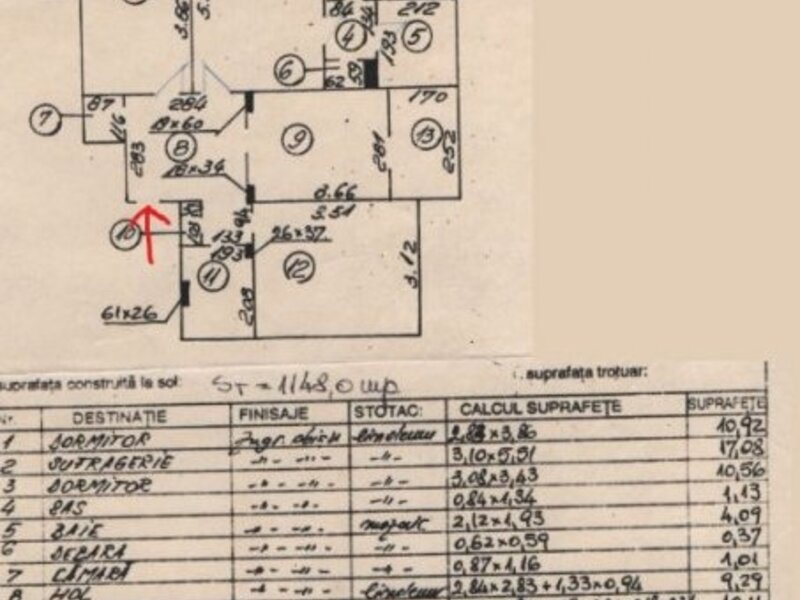 3.86
84
134
212
4
5
193
6
62
59
87
284
170
7
116
18x60
8
9
281
13
252
283
18x34
3.66
3.51
10
94
133
26x37
193
11
12
3.12
61x26
209
suprafața construită la sol: ST = 1148,0 mp
suprafața trotuar:
Nr. DESTINAȚIE FINISAJE STOTAC: CALCUL SUPRAFEȚE SUPRAFEȚE
1 DORMITOR linoleum 2,83x3,86 10,92
2 SUFRAGERIE -"- -"- -"- 3,10x5,51 17,08
3 DORMITOR -"- -"- -"- 3,08x3,43 10,56
4 SAS -"- -"- -"- 0,84x1,34 1,13
5 BAIE -"- -"- mozaic 2,12x1,93 4,09
6 DEBARA -"- -"- -"- 0,62x0,59 0,37
7 CĂMARĂ -"- -"- -"- 0,87x1,16 1,01
8 HOL -"- -"- linoleum 2,84x2,83+1,33x0,94 9,29